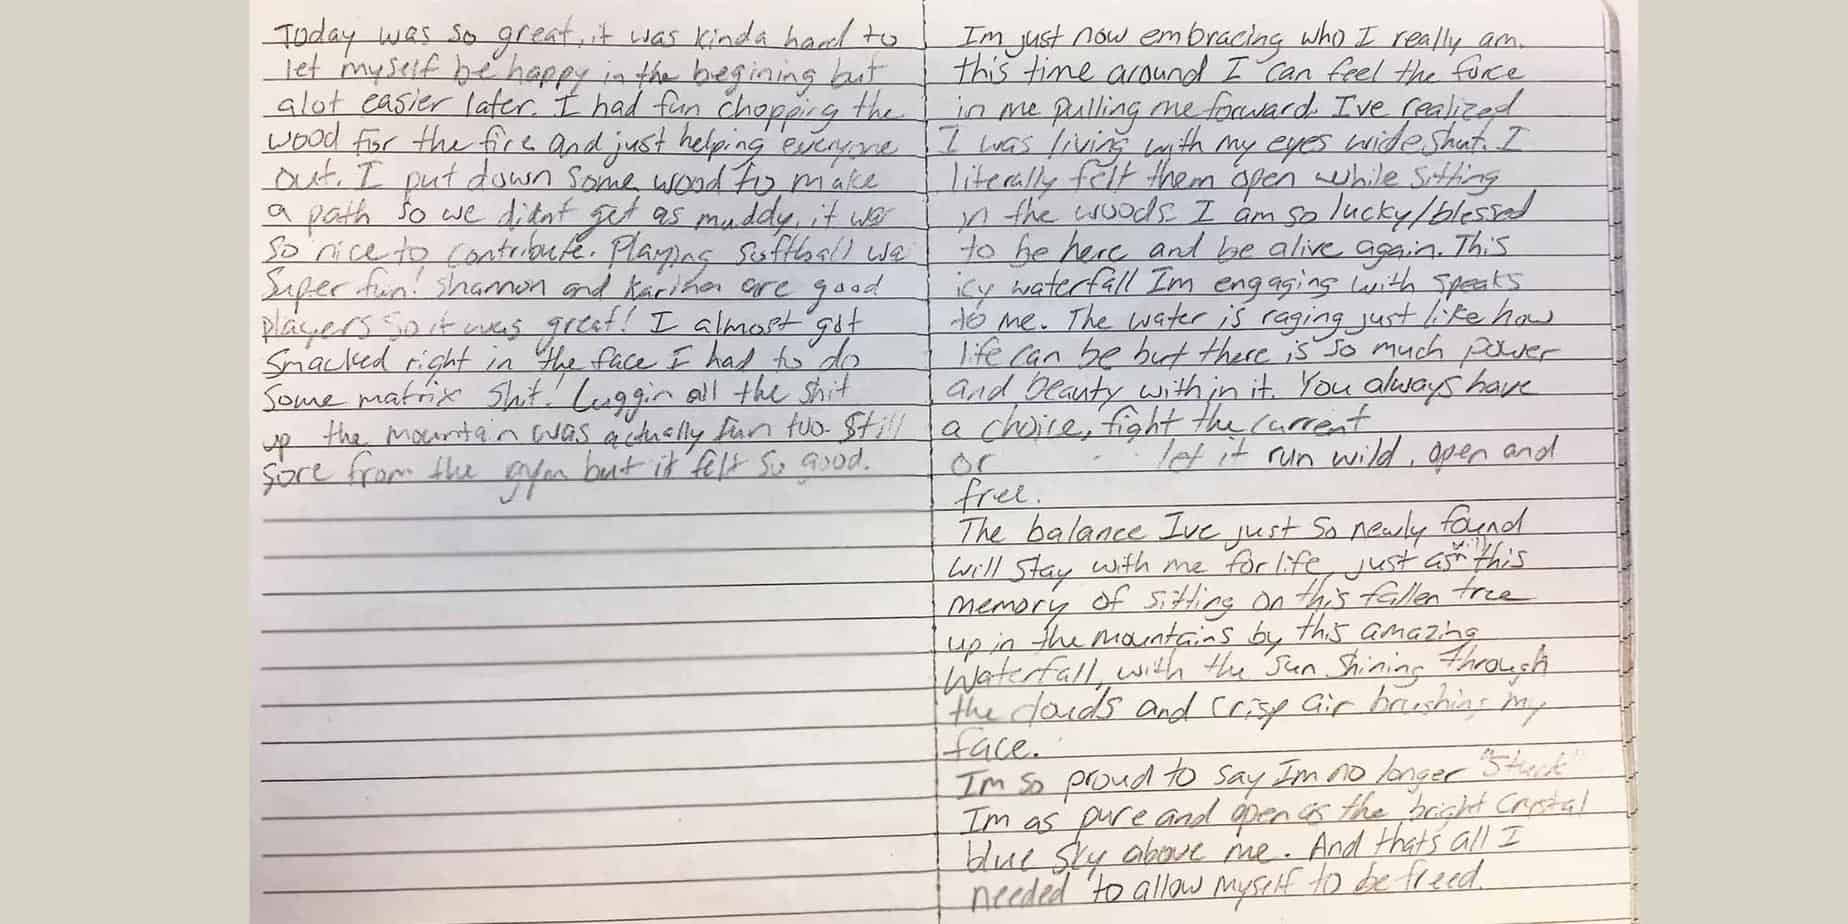 Today was so great, it was kinda hard to
let myself be happy in the begining but
alot easier later. I had fun chopping the
wood for the fire and just helping everyone
out. I put down some wood to make
a path so we didnt get as muddy, it was
so nice to contribute. Playing softball wa
Super fun! Shannon and Karina are good
players so it was great! I almost got
smacked right in the face I had to do
some matrix shit! Luggin all the shit
up the mountain was actually fun too. Still
sore from the gym but it felt so good.
Im just now embracing who I really am.
this time around I can feel the force
in me pulling me forward. I've realized
I was living with my eyes wide shut. I
literally felt them open while sitting
in the woods. I am so lucky/blessed
to be here and be alive again. This
icy waterfall Im engaging with speaks
to me. The water is raging just like how
life can be but there is so much power
and beauty within it. You always have
a choice, fight the current
or let it run wild, open and
free.
The balance Ive just so newly found
will stay with me for life, just as will this
memory of sitting on this fallen tree
up in the mountains by this amazing
Waterfall, with the sun shining through
the clouds and crisp air brushing my
face.
Im so proud to say Im no longer "stuck"
Im as pure and open as the bright crystal
blue sky above me. And thats all I
needed to allow myself to be freed.